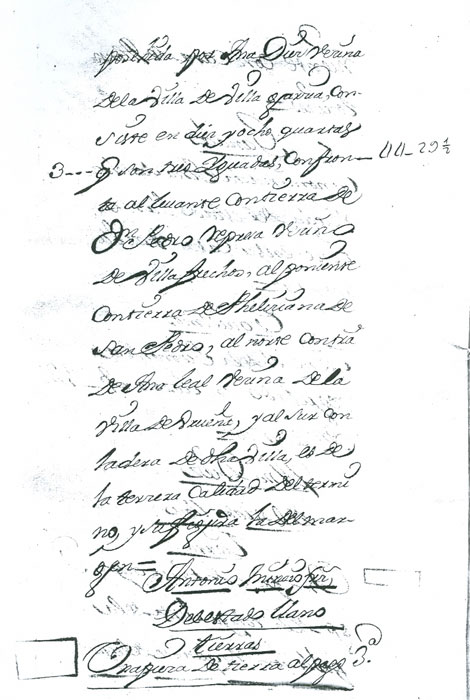 posehida por Ana Diez Vezina
de la Villa de Villa garzia, Con-
siste en diez y ocho quartas
3--- q son tres Yguadas, Confron- 44-29 1/2
ta al levante Con tierra de
Dn Pedro Vezino
de Villa frechos, al poniente
Con tierra de Pheliziana de
San Pedro, al norte Con tra
de Ana leal Vezina de la
Villa de Urueñe, y al sur Con
ladera de dha Villa, es de
la terzera Calidad del termi
no, y su figura la del mar-
gen=
Antonio
Del estado llano
tierras
Una pieza de tierra al pago 3.a